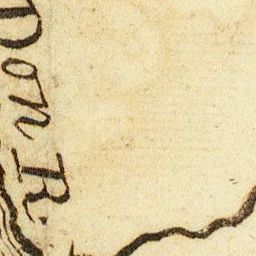 Don R.